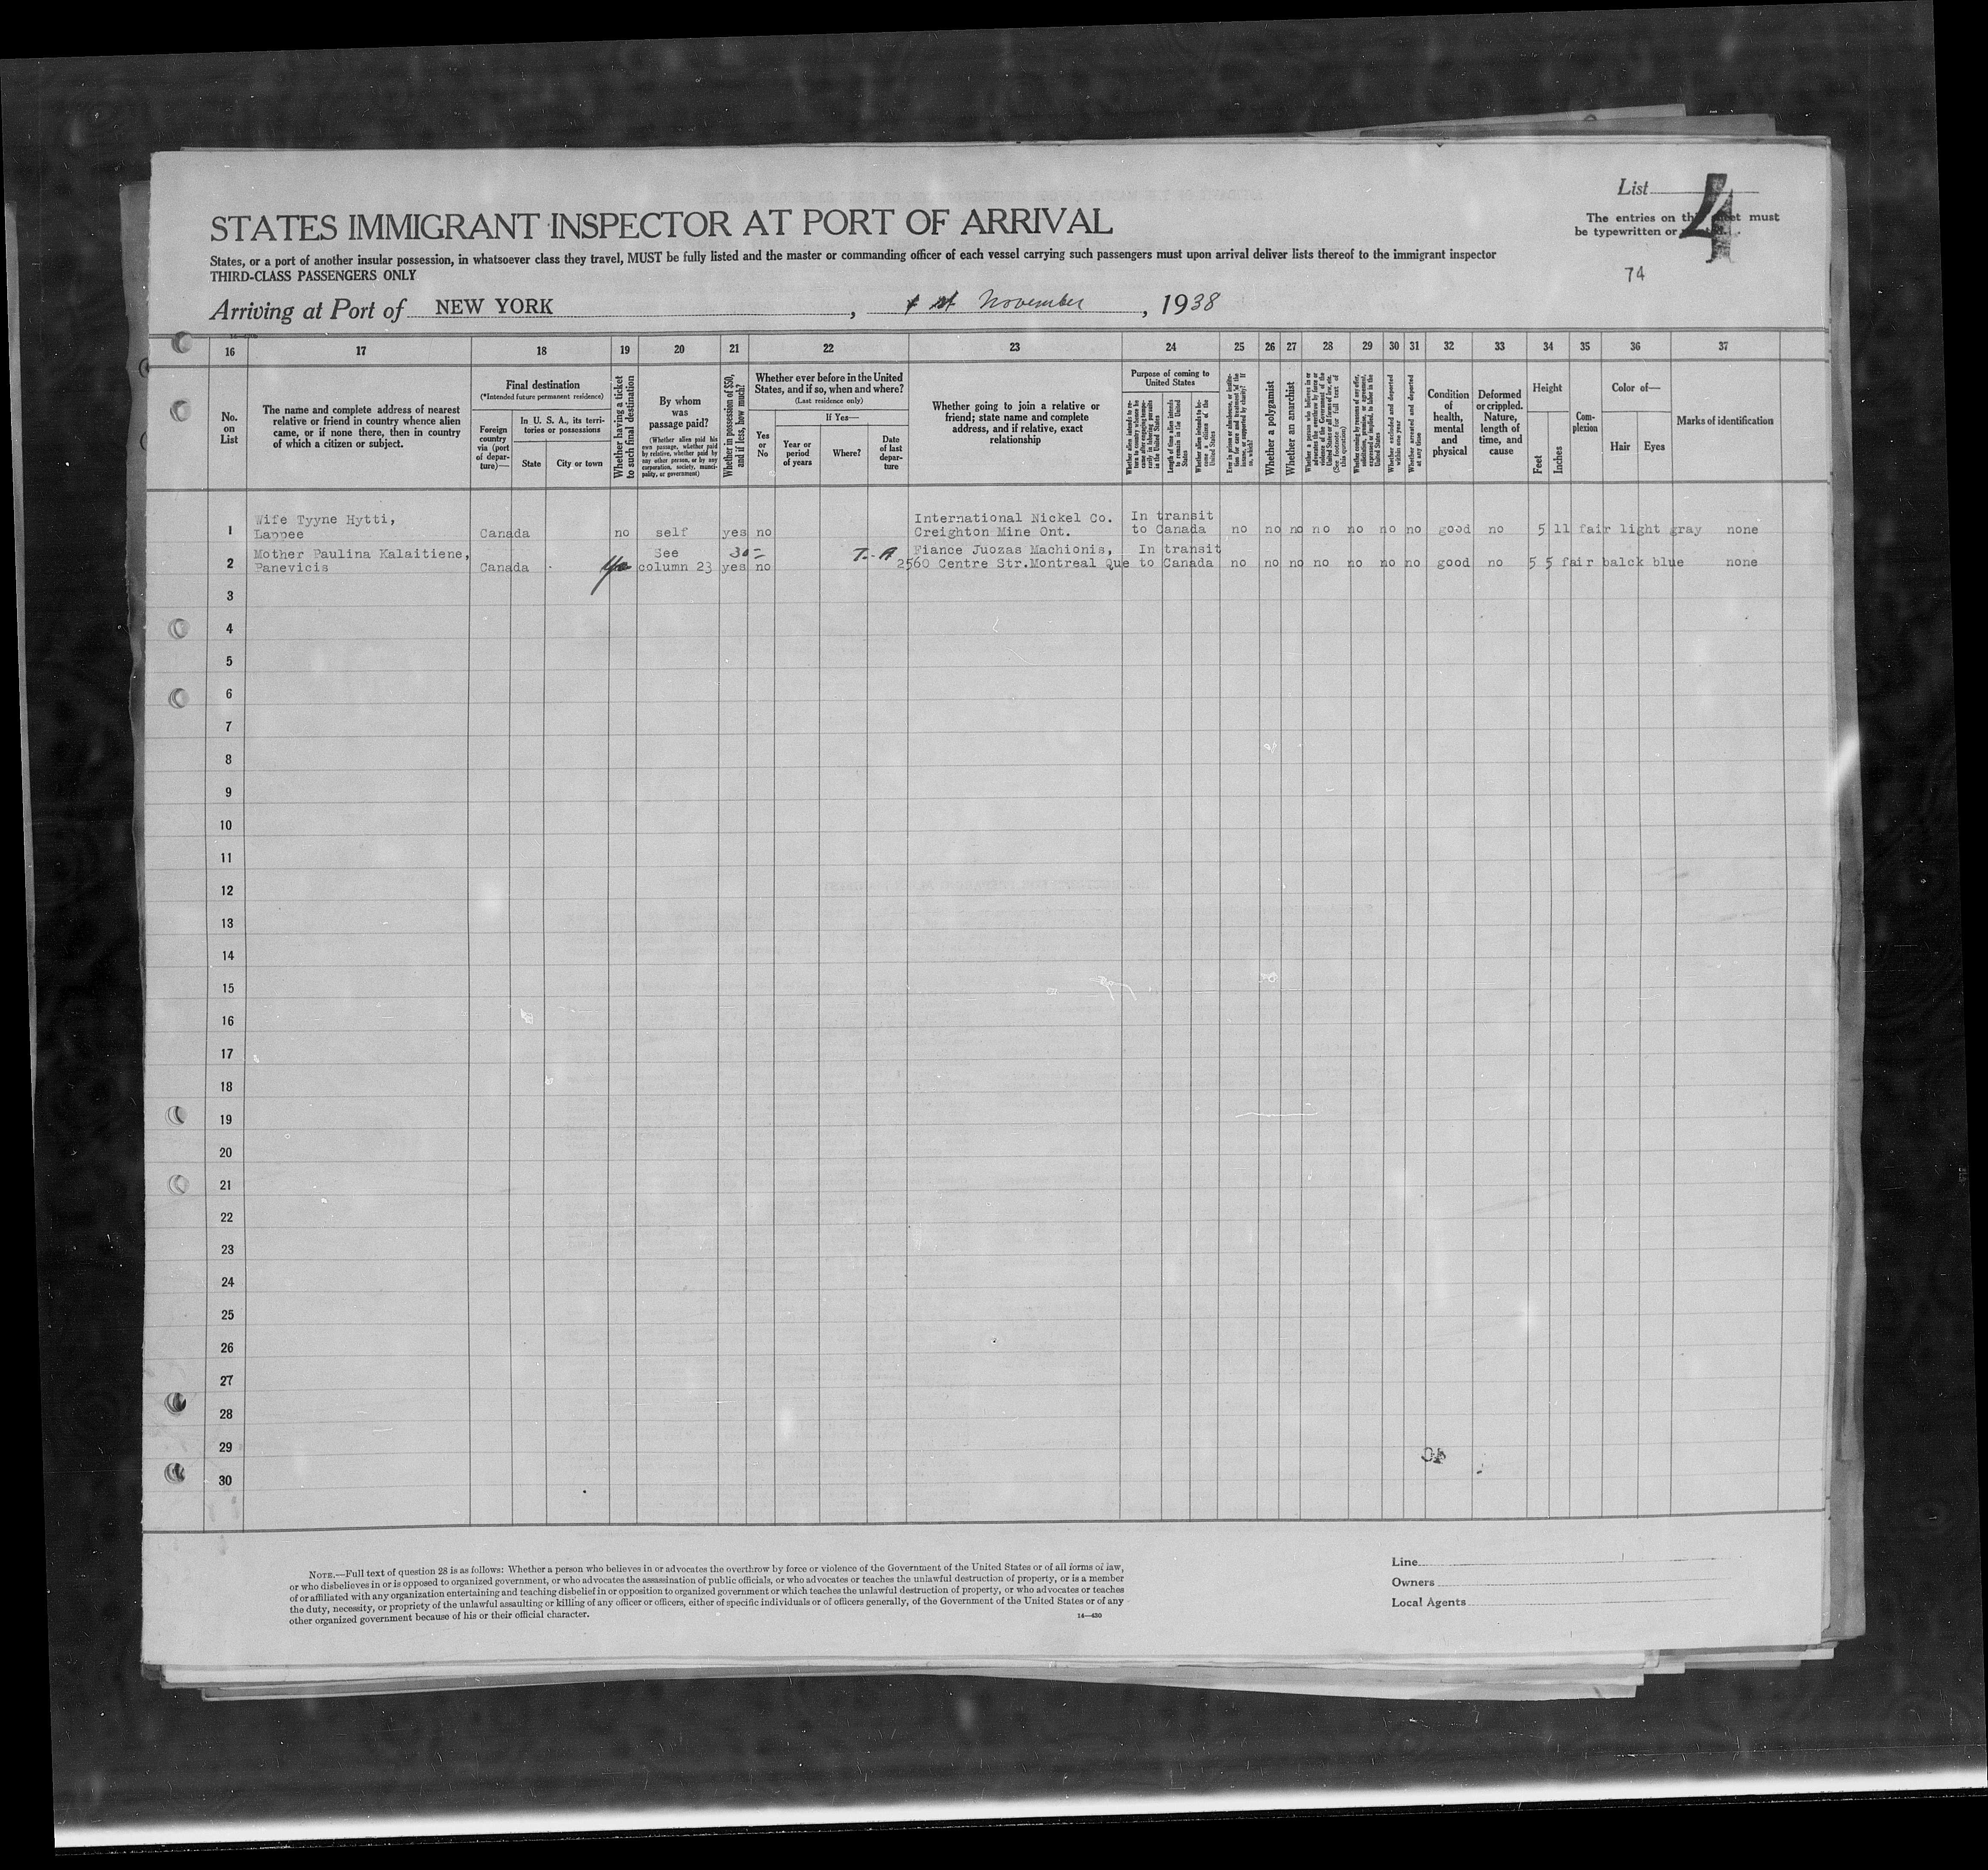 List 4
STATES IMMIGRANT INSPECTOR AT PORT OF ARRIVAL
The entries on this sheet must
be typewritten or
States, or a port of another insular possession, in whatsoever class they travel, MUST be fully listed and the master or commanding officer of each vessel carrying such passengers must upon arrival deliver lists thereof to the immigrant inspector
THIRD-CLASS PASSENGERS ONLY
74
Arriving at Port of NEW YORK, November, 1938
16 17 18 19 20 21 22 23 24 25 26 27 28 29 30 31 32 33 34 35 36 37
No. on List
The name and complete address of nearest
relative or friend in country whence alien
came, or if none there, then in country
of which a citizen or subject.
Final destination
(*Intended future permanent residence)
Foreign country via (port of departure)—
In U. S. A., its territories or possessions
State
City or town
Whether having a ticket to such final destination
By whom was passage paid?
(Whether alien paid his own passage, whether paid by relative, whether paid by any other person, or by any corporation, society, municipality, or government)
Whether in possession of $50, and if less, how much?
Whether ever before in the United
States, and if so, when and where?
(Last residence only)
Yes or No
If Yes—
Year or period of years
Where?
Date of last departure
Whether going to join a relative or
friend; state name and complete
address, and if relative, exact
relationship
Purpose of coming to United States
Whether alien intends to return to country whence he came after engaging temporarily in laboring pursuits in the United States
Length of time alien intends to remain in the United States
Whether alien intends to become a citizen of the United States
Ever in prison or almshouse, or institution for care and treatment of the insane, or supported by charity? If so, which?
Whether a polygamist
Whether an anarchist
(See footnote for full text of this question)
Whether excluded and deported within one year
Whether arrested and deported at any time
Condition of health, mental and physical
Deformed or crippled. Nature, length of time, and cause
Height
Feet
Inches
Complexion
Color of—
Hair
Eyes
Marks of identification
1 Wife Tyyne Hytti, International Nickel Co. In transit
Lappee Canada no self yes no Creighton Mine Ont. to Canada no no no no no no no good no 5 11 fair light gray none
2 Mother Paulina Kalaitiene, See 30- T.A Fiance Juozas Machionis, In transit
Panevicis Canada column 23 yes no 2560 Centre Str.Montreal Que to Canada no no no no no no no good no 5 5 fair balck blue none
3
4
5
6
7
8
9
10
11
12
13
14
15
16
17
18
19
20
21
22
23
24
25
26
27
28
29
30
NOTE.—Full text of question 28 is as follows: Whether a person who believes in or advocates the overthrow by force or violence of the Government of the United States or of all forms of law,
or who disbelieves in or is opposed to organized government, or who advocates the assassination of public officials, or who advocates or teaches the unlawful destruction of property, or is a member
of or affiliated with any organization entertaining and teaching disbelief in or opposition to organized government or which teaches the unlawful destruction of property, or who advocates or teaches
the duty, necessity, or propriety of the unlawful assaulting or killing of any officer or officers, either of specific individuals or of officers generally, of the Government of the United States or of any
other organized government because of his or their official character.
14—430
Line
Owners
Local Agents